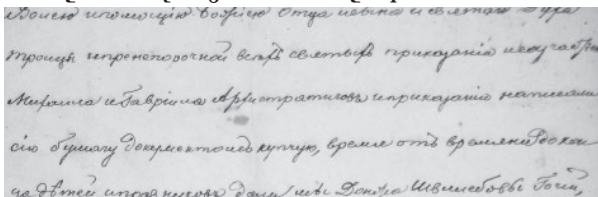 Волею и помощію Божіею Отца и Сына и Святаго Духа
троицы и пренепорочной всехъ святыхъ приказанія и
Михаила и Гавріила Архистратиговъ и приказанія написали
сію бумагу документомъ купчую, время отъ времени до кон
ца детей и дали мы Донъра Швилебовы Гоги,